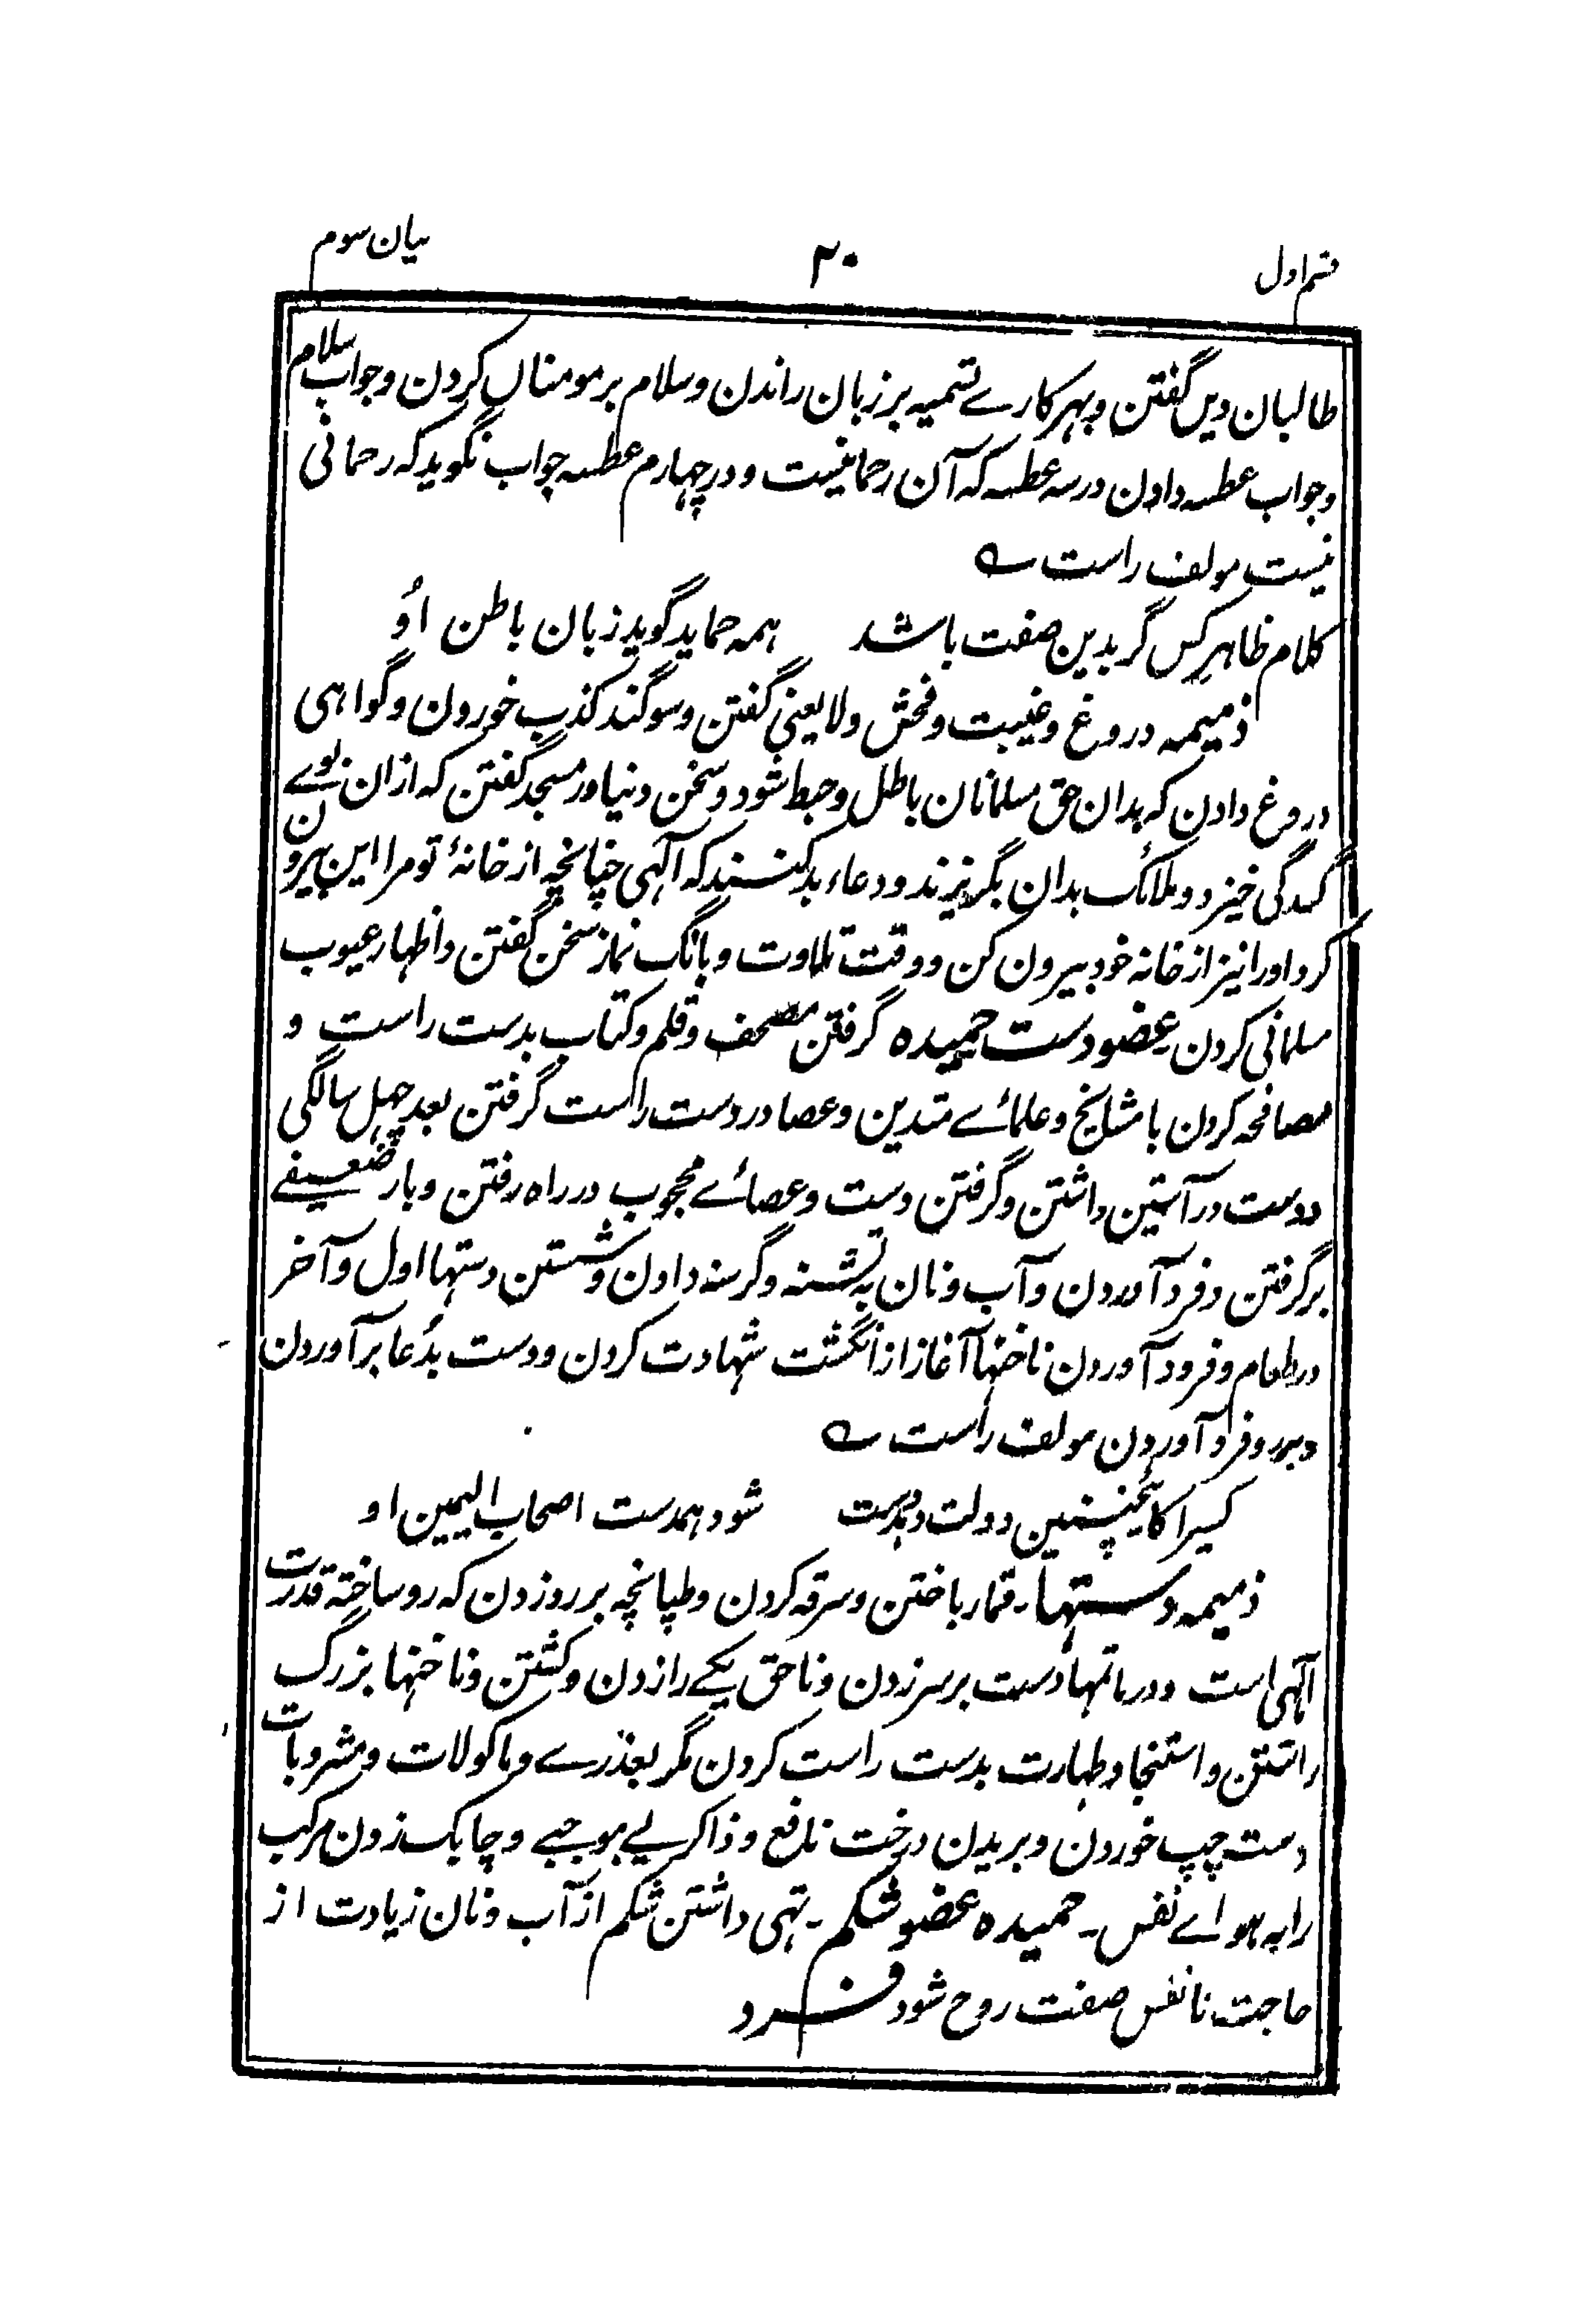 قسم اول
۲۰
بیان سوم
طالبان دیں گفتن و بہر کارے تسمیہ بر زبان راندن و سلام بر مومناں کردن و جواب سلام
و جواب عطسہ دادن در سہ عطسہ کہ آن رحمانیست و در چہارم عطسہ جواب نگوید کہ رحمانی
نیست مولف راست ؎
کلام ظاہر کس گر بدین صفت باشد ہمہ حماید گوید زبان باطن اُو
ذمیمہ دروغ و غیبت و فحش و لا یعنی گفتن و سوگند کذب خوردن و گواہی
دروغ دادن کہ بدان حق مسلمانان باطل و حبط شود و سخن دنیا در مسجد گفتن کہ ازان بوے
گندگی خیزد و ملائک بدان بگریزند و دعاء بد کنند کہ آلہی چنانچہ از خانۂ تو مرا این بیرون
کرد اورا نیز از خانہ خود بیرون کن و وقت تلاوت و بانگ نماز سخن گفتن و اظہار عیوب
مسلمانی کردن عضو دست حمیدہ گرفتن مصحف و قلم و کتاب بدست راست و
مصافحہ کردن با مشایخ و علمائے متدین و عصا در دست راست گرفتن بعد چہل سالگی
و دست در آستین داشتن و گرفتن دست و عصائے محجوب در راہ رفتن و بار ضعیفے
برگرفتن و فرد آوردن و آب و نان بہ تشنہ و گرسنہ دادن و شستن دستہا اول و آخر
در طعام و فرود آوردن ناخنہا آغاز از انگشت شہادت کردن و دست بدُعا برآوردن
و برو فرد آوردن مولف راست ؎
کسیرا کاینچنین دولت دہد دست شود ہمدست اصحاب الیمین او
ذمیمہ دستہا۔ قمار باختن و سرقہ کردن و طپانچہ بر رو زدن کہ رو ساختہ قدرت
آلہی است و در ماتمہا دست بر سر زدن و ناحق یکے را زدن و کشتن و ناخنہا بزرگ
داشتن و استنجا و طہارت بدست راست کردن مگر بعذرے و ماکولات و مشروبات
دست چپ خوردن و بریدن درخت نافع و ذاکر بے موجبے و چابک زدن مرکب
را بہ ہواے نفس۔ حمیدہ عضو شکم۔ تہی داشتن شکم از آب و نان زیادت از
حاجت تا نفس صفت روح شود فرد